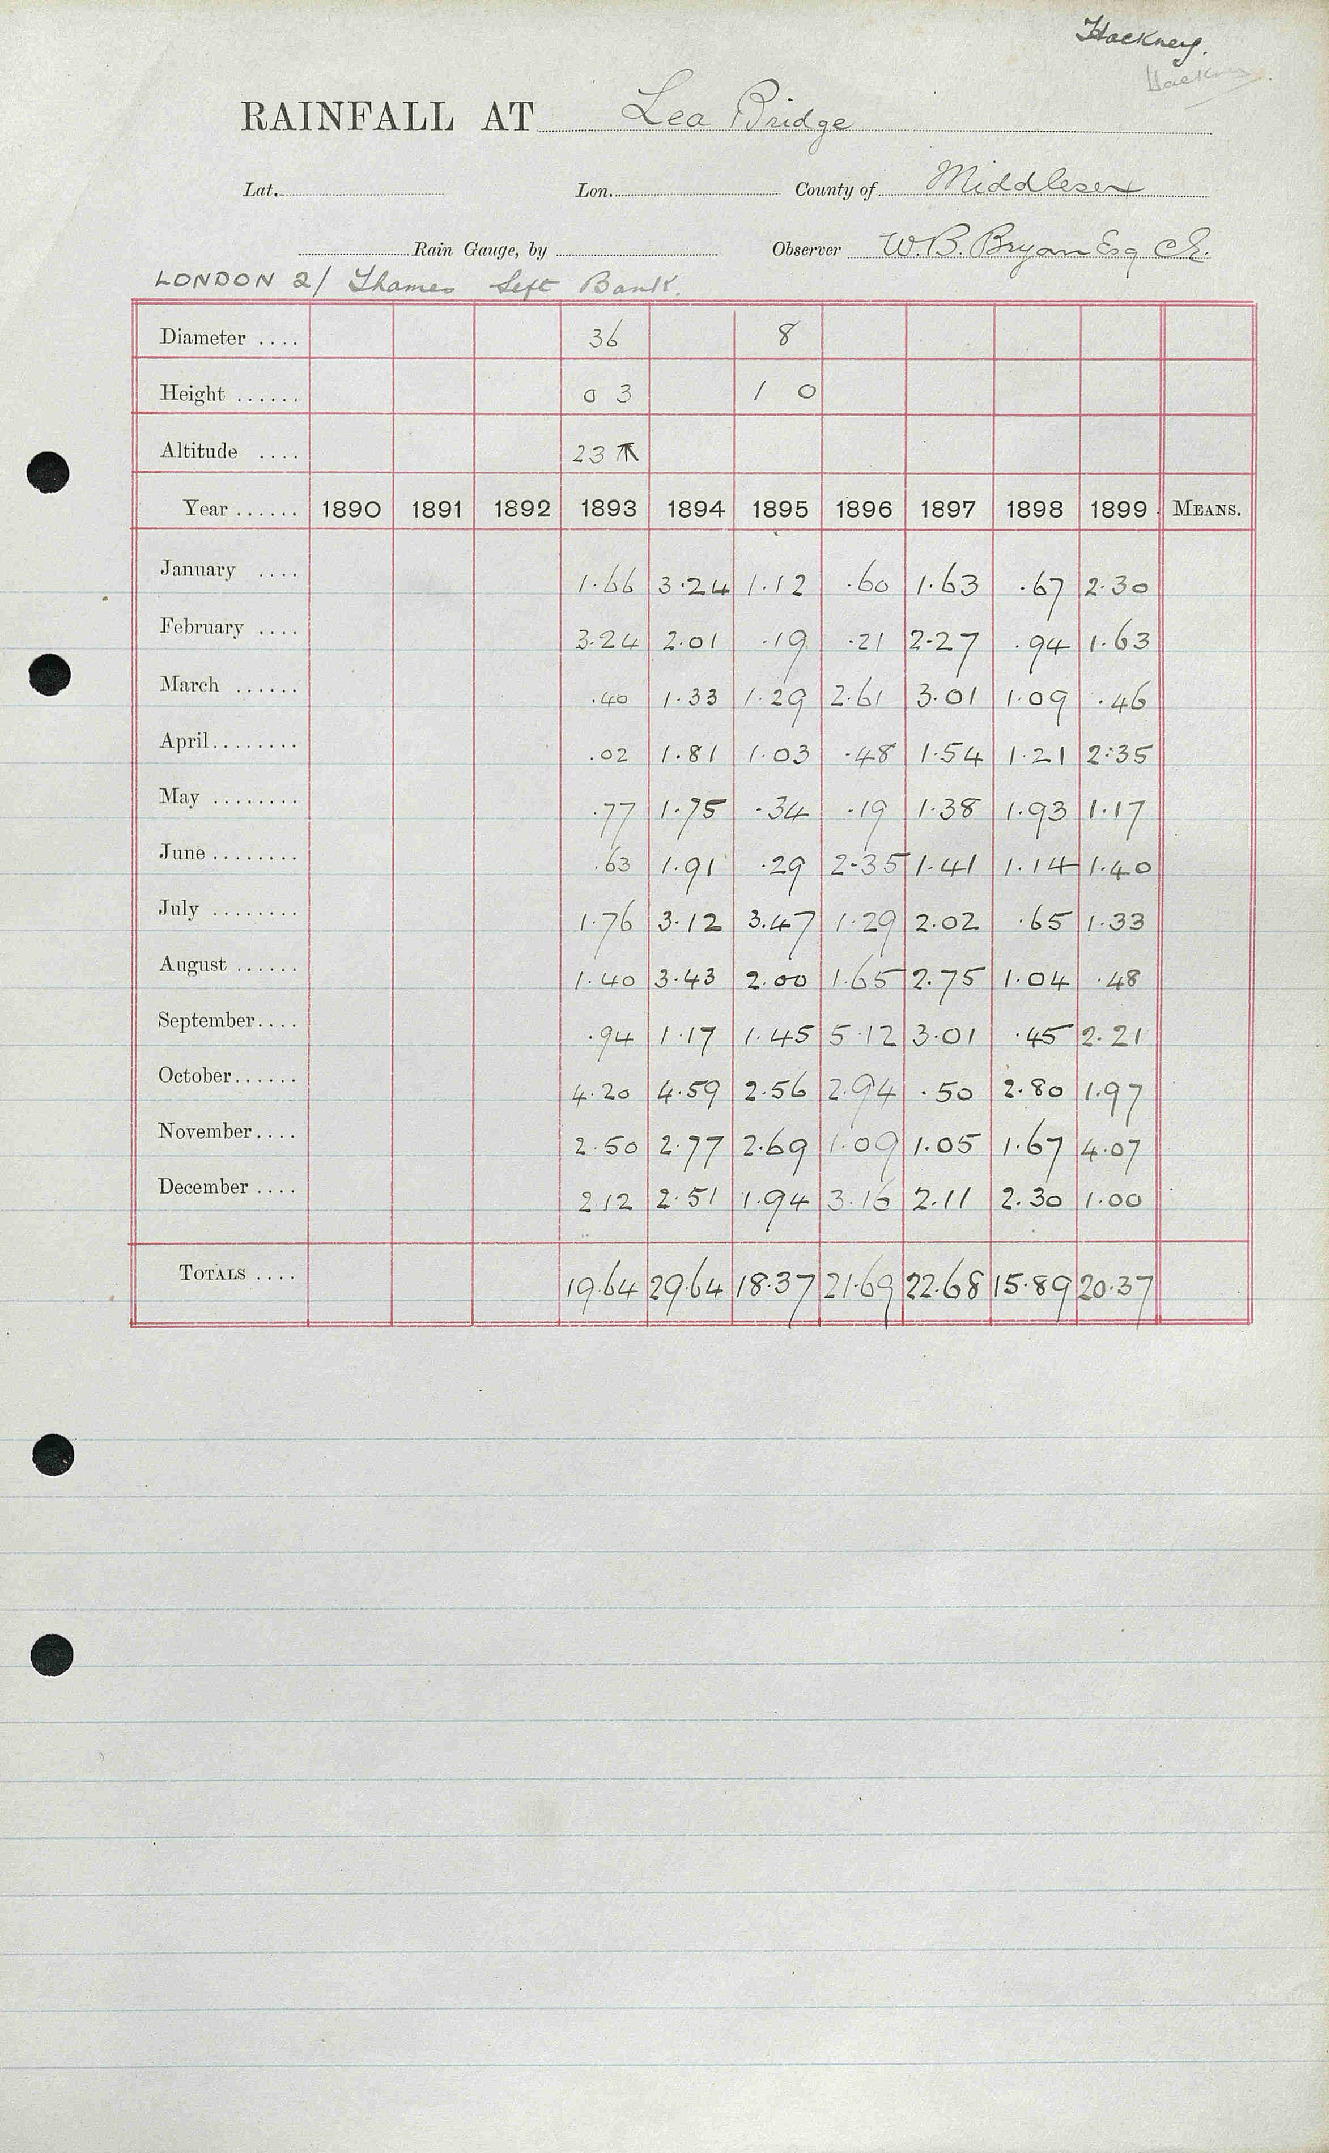 Hackney.
Hackney.
RAINFALL AT Lea Bridge
Lat. Lon. County of Middlesex
Rain Gauge, by Observer W.B. Bryan Esq CE.
LONDON 2/ Thames Left Bank.
Diameter .... 36 8
Height ...... 0 3 1 0
Altitude .... 23
Year ...... 1890 1891 1892 1893 1894 1895 1896 1897 1898 1899 MEANS.
January .... 1.66 3.24 1.12 .60 1.63 .67 2.30
February .... 3.24 2.01 .19 .21 2.27 .94 1.63
March ...... .40 1.33 1.29 2.61 3.01 1.09 .46
April........ .02 1.81 1.03 .48 1.54 1.21 2.35
May ........ .77 1.75 .34 .19 1.38 1.93 1.17
June........ .63 1.91 .29 2.35 1.41 1.14 1.40
July ........ 1.76 3.12 3.47 1.29 2.02 .65 1.33
August ...... 1.40 3.43 2.00 1.65 2.75 1.04 .48
September.... .94 1.17 1.45 5.12 3.01 .45 2.21
October...... 4.20 4.59 2.56 2.94 .50 2.80 1.97
November.... 2.50 2.77 2.69 1.09 1.05 1.67 4.07
December .... 2.12 2.51 1.94 3.16 2.11 2.30 1.00
TOTALS .... 19.64 29.64 18.37 21.69 22.68 15.89 20.37